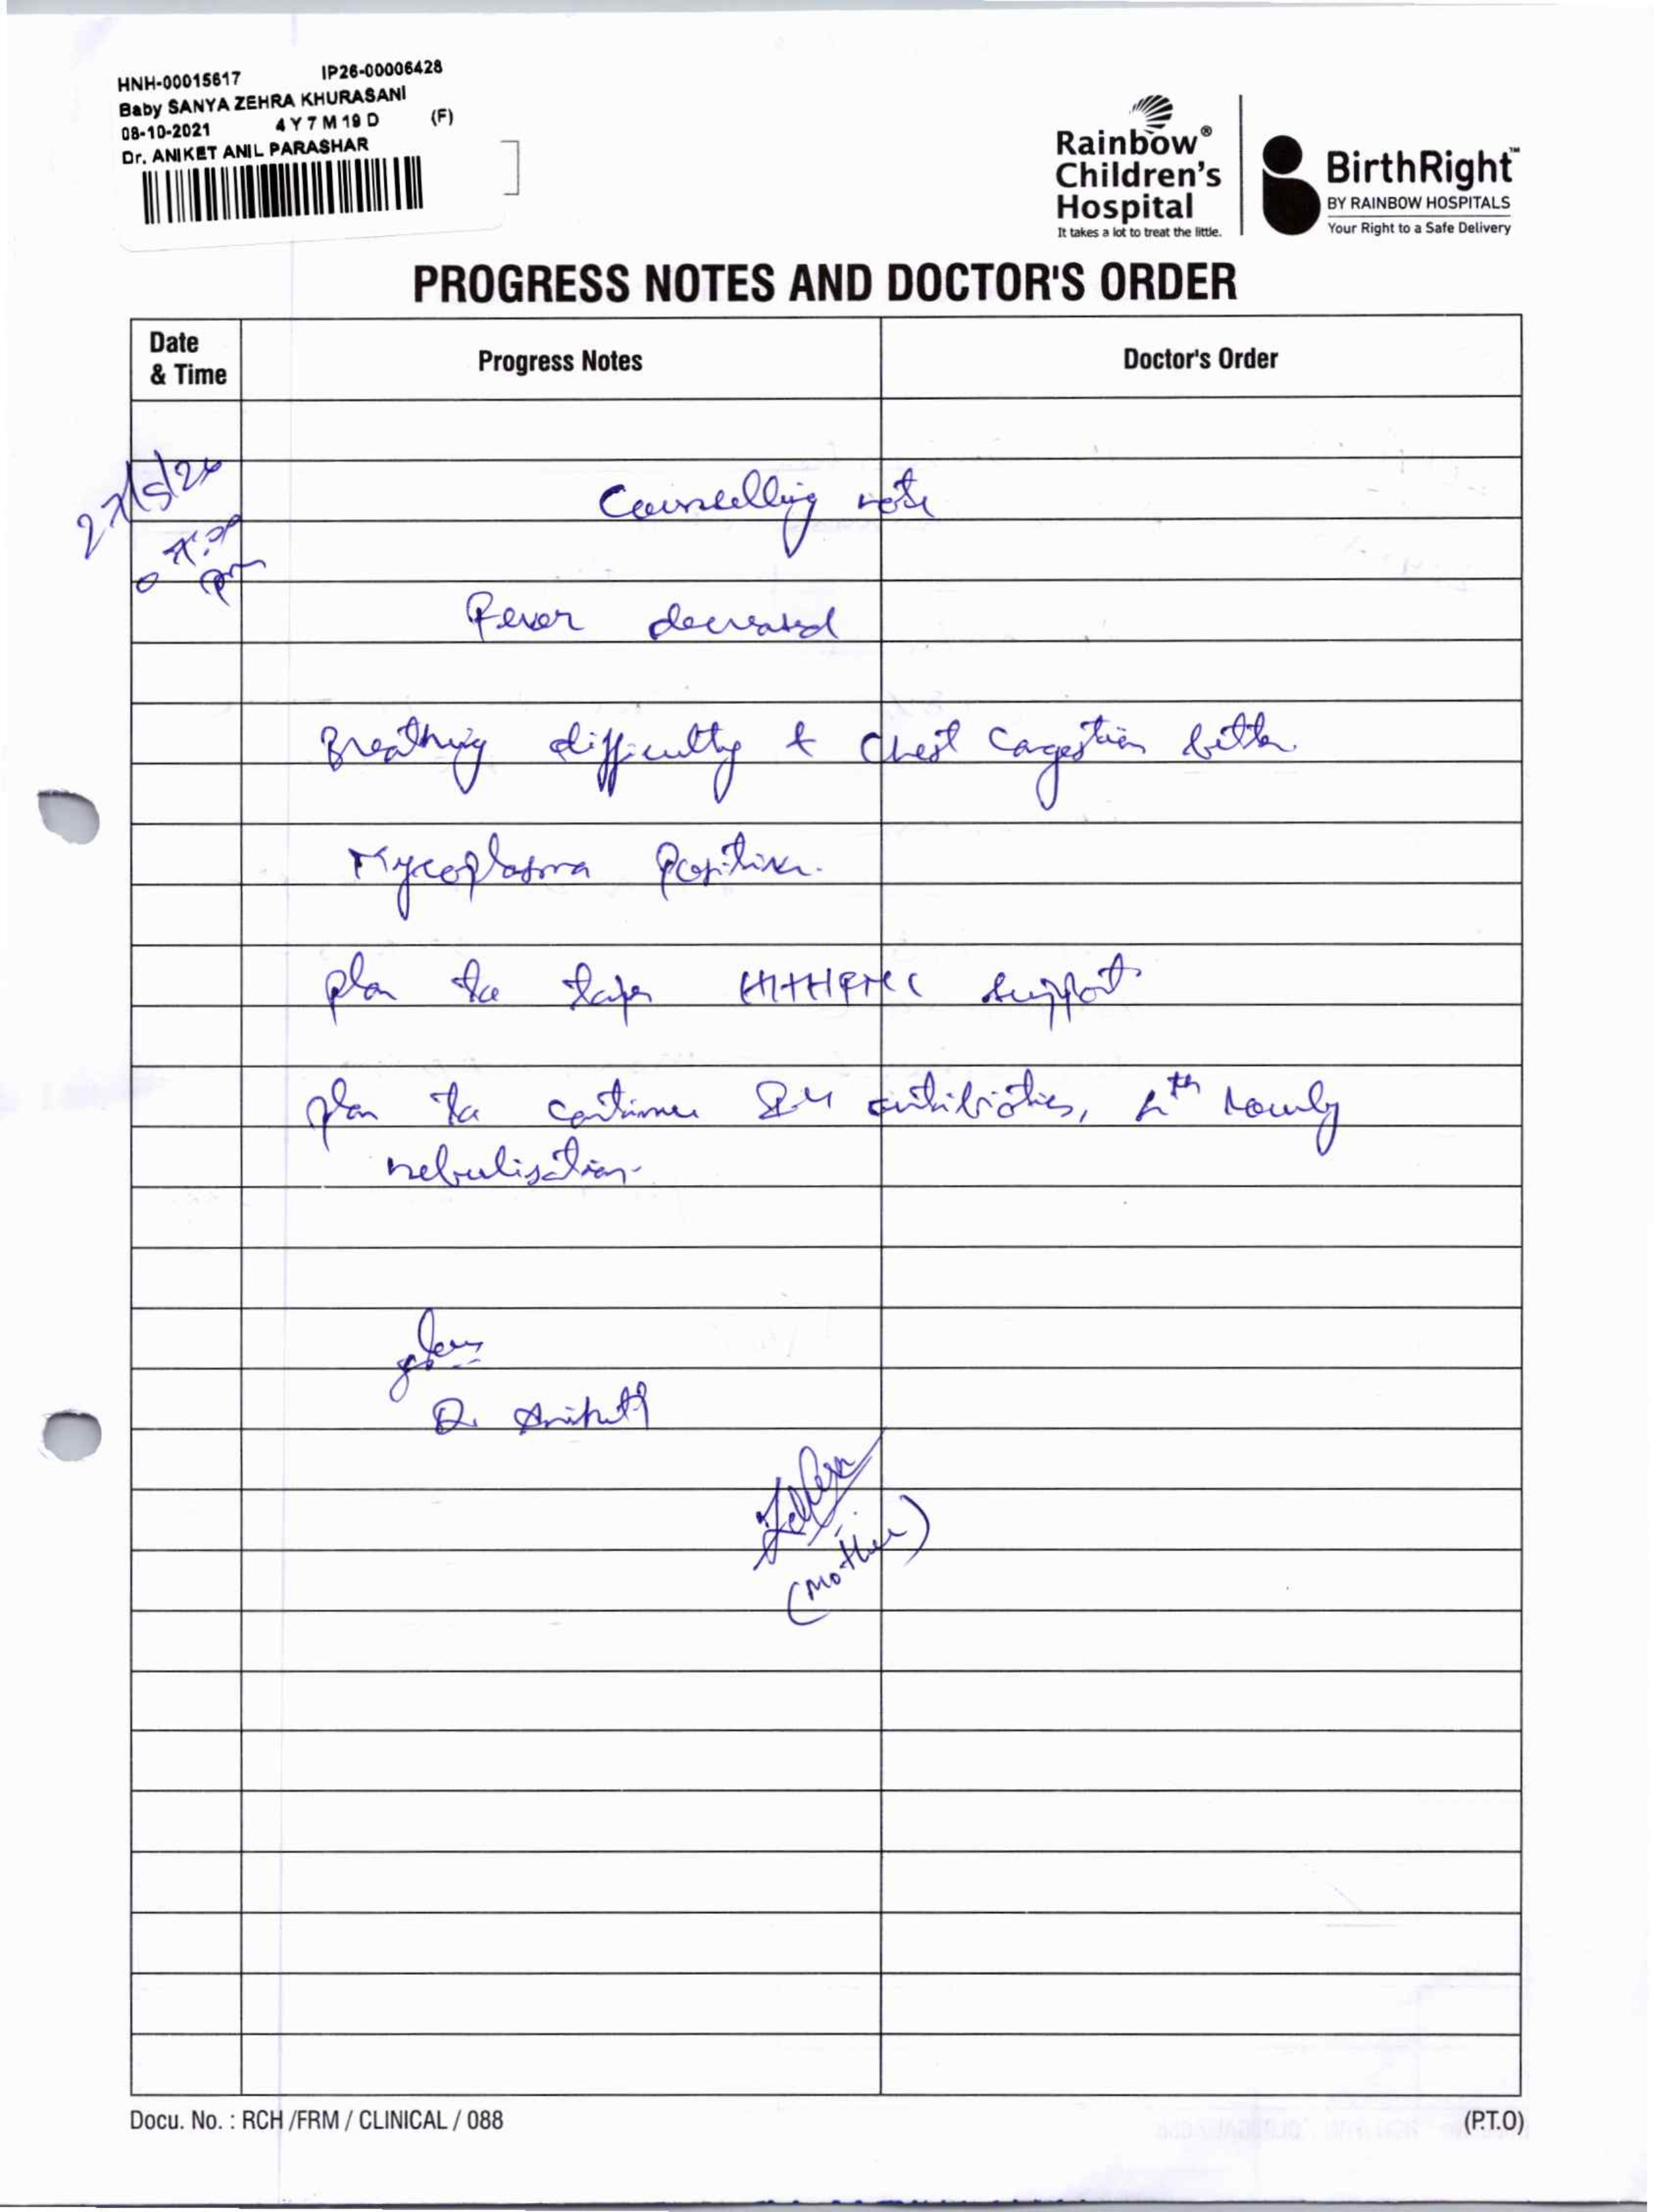 HNH-00015617 IP26-00006428
Baby SANYA ZEHRA KHURASANI
08-10-2021 4 Y 7 M 19 D (F)
Dr. ANIKET ANIL PARASHAR
Rainbow®
Children's
Hospital
It takes a lot to treat the little.
BirthRight™
BY RAINBOW HOSPITALS
Your Right to a Safe Delivery
PROGRESS NOTES AND DOCTOR'S ORDER
Date
& Time
Progress Notes
Doctor's Order
27/5/26
pm
Counselling note
Fever decreased
Breathing difficulty & Chest Congestion better
Mycoplasma Positive.
plan to taper support
plan to continue antibiotics, hourly
nebulisation.
Dr. Aniket
(Mother)
Docu. No. : RCH /FRM / CLINICAL / 088
(P.T.O)